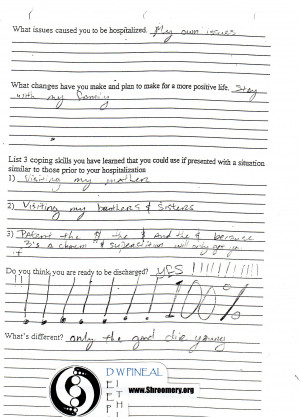 What issues caused you to be hospitalized. My own issues
What changes have you make and plan to make for a more positive life. Stay
with my family
List 3 coping skills you have learned that you could use if presented with a situation
similar to those prior to your hospitalization
1) Visiting my mother
2) Visiting my brothers & sisters
3) Patent the # the $ and the & because
3's a charm & superstition will only get you
it
Do you think you are ready to be discharged? YES !!!!!!!!!
!!!!!!!!!! 100%
What's different? only the good die young
DWPINEAL
www.Shroomery.org